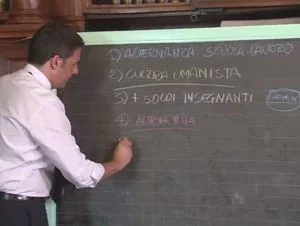 1) ALTERNANZA SCUOLA-LAVORO
2) CULTURA UMANISTA
3) + SOLDI INSEGNANTI
4) AUTONOMIA